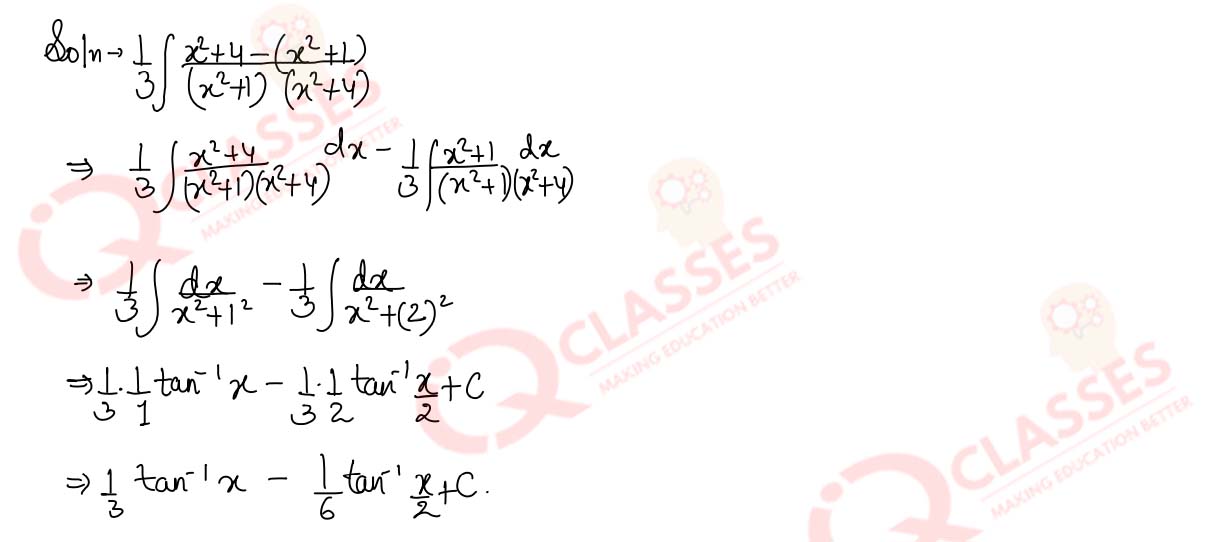 Soln → 1/3 ∫ x²+4-(x²+1) / (x²+1) (x²+4)
⇒ 1/3 ∫ x²+4 / (x²+1)(x²+4) dx - 1/3 ∫ x²+1 / (x²+1)(x²+4) dx
⇒ 1/3 ∫ dx / x²+1² - 1/3 ∫ dx / x²+(2)²
⇒ 1/3 · 1/1 tan⁻¹ x - 1/3 · 1/2 tan⁻¹ x/2 + C
⇒ 1/3 tan⁻¹ x - 1/6 tan⁻¹ x/2 + C.
IQ CLASSES
MAKING EDUCATION BETTER
IQ CLASSES
MAKING EDUCATION BETTER
IQ CLASSES
MAKING EDUCATION BETTER